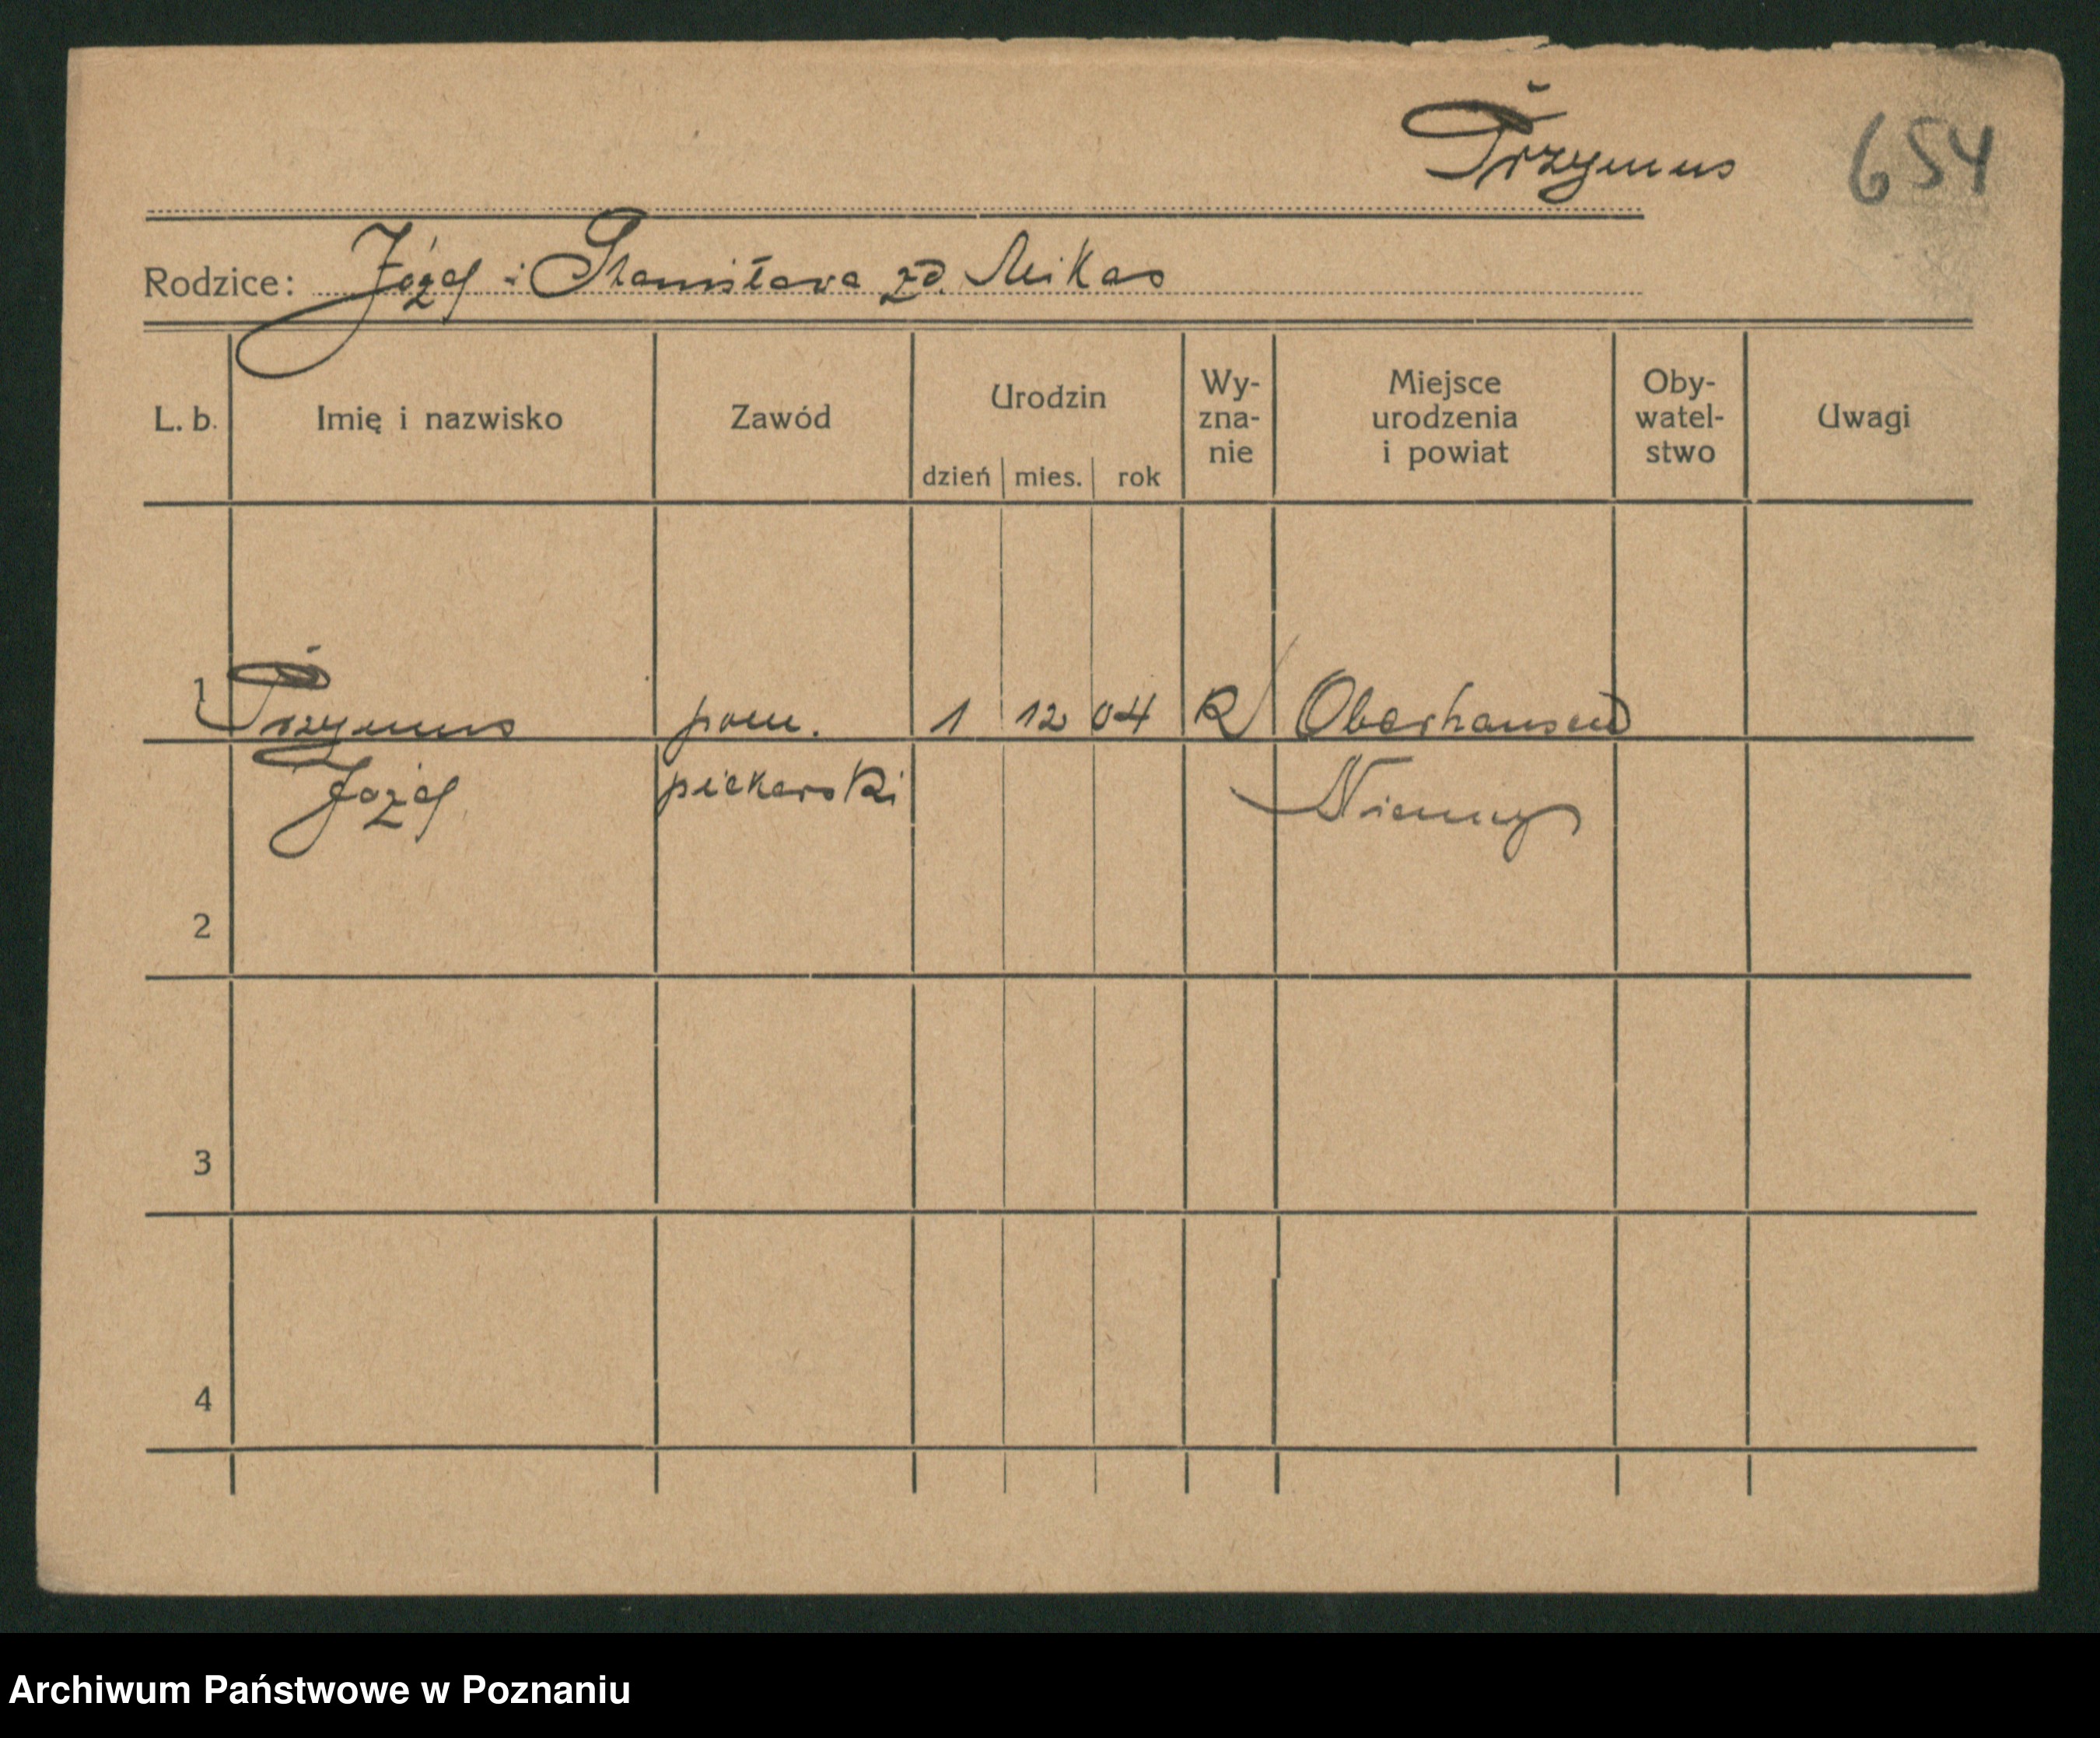 Przymus 654
Rodzice: Józef i Stanisława zd. Mikas
L. b. Imię i nazwisko Zawód Urodzin dzień mies. rok Wy-zna-nie Miejsce urodzenia i powiat Oby-watel-stwo Uwagi
1 Przymus pom. 1 12 04 R Oberhausen
Józef piekarski Niemcy
2
3
4
Archiwum Państwowe w Poznaniu